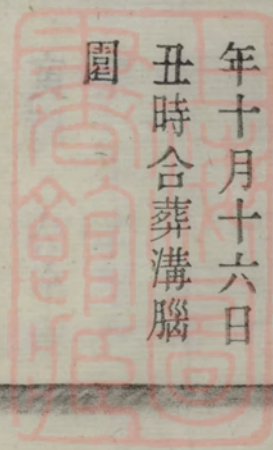 年十月十六日
丑時合葬溝腦
園